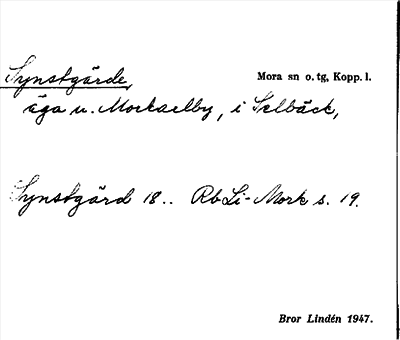 Synstgärde, Mora sn o. tg, Kopp. l.
äga u. Morkarlby, i Selbäck,
Synstgärd 18.. RbLi-Mork s. 19.
Bror Lindén 1947.